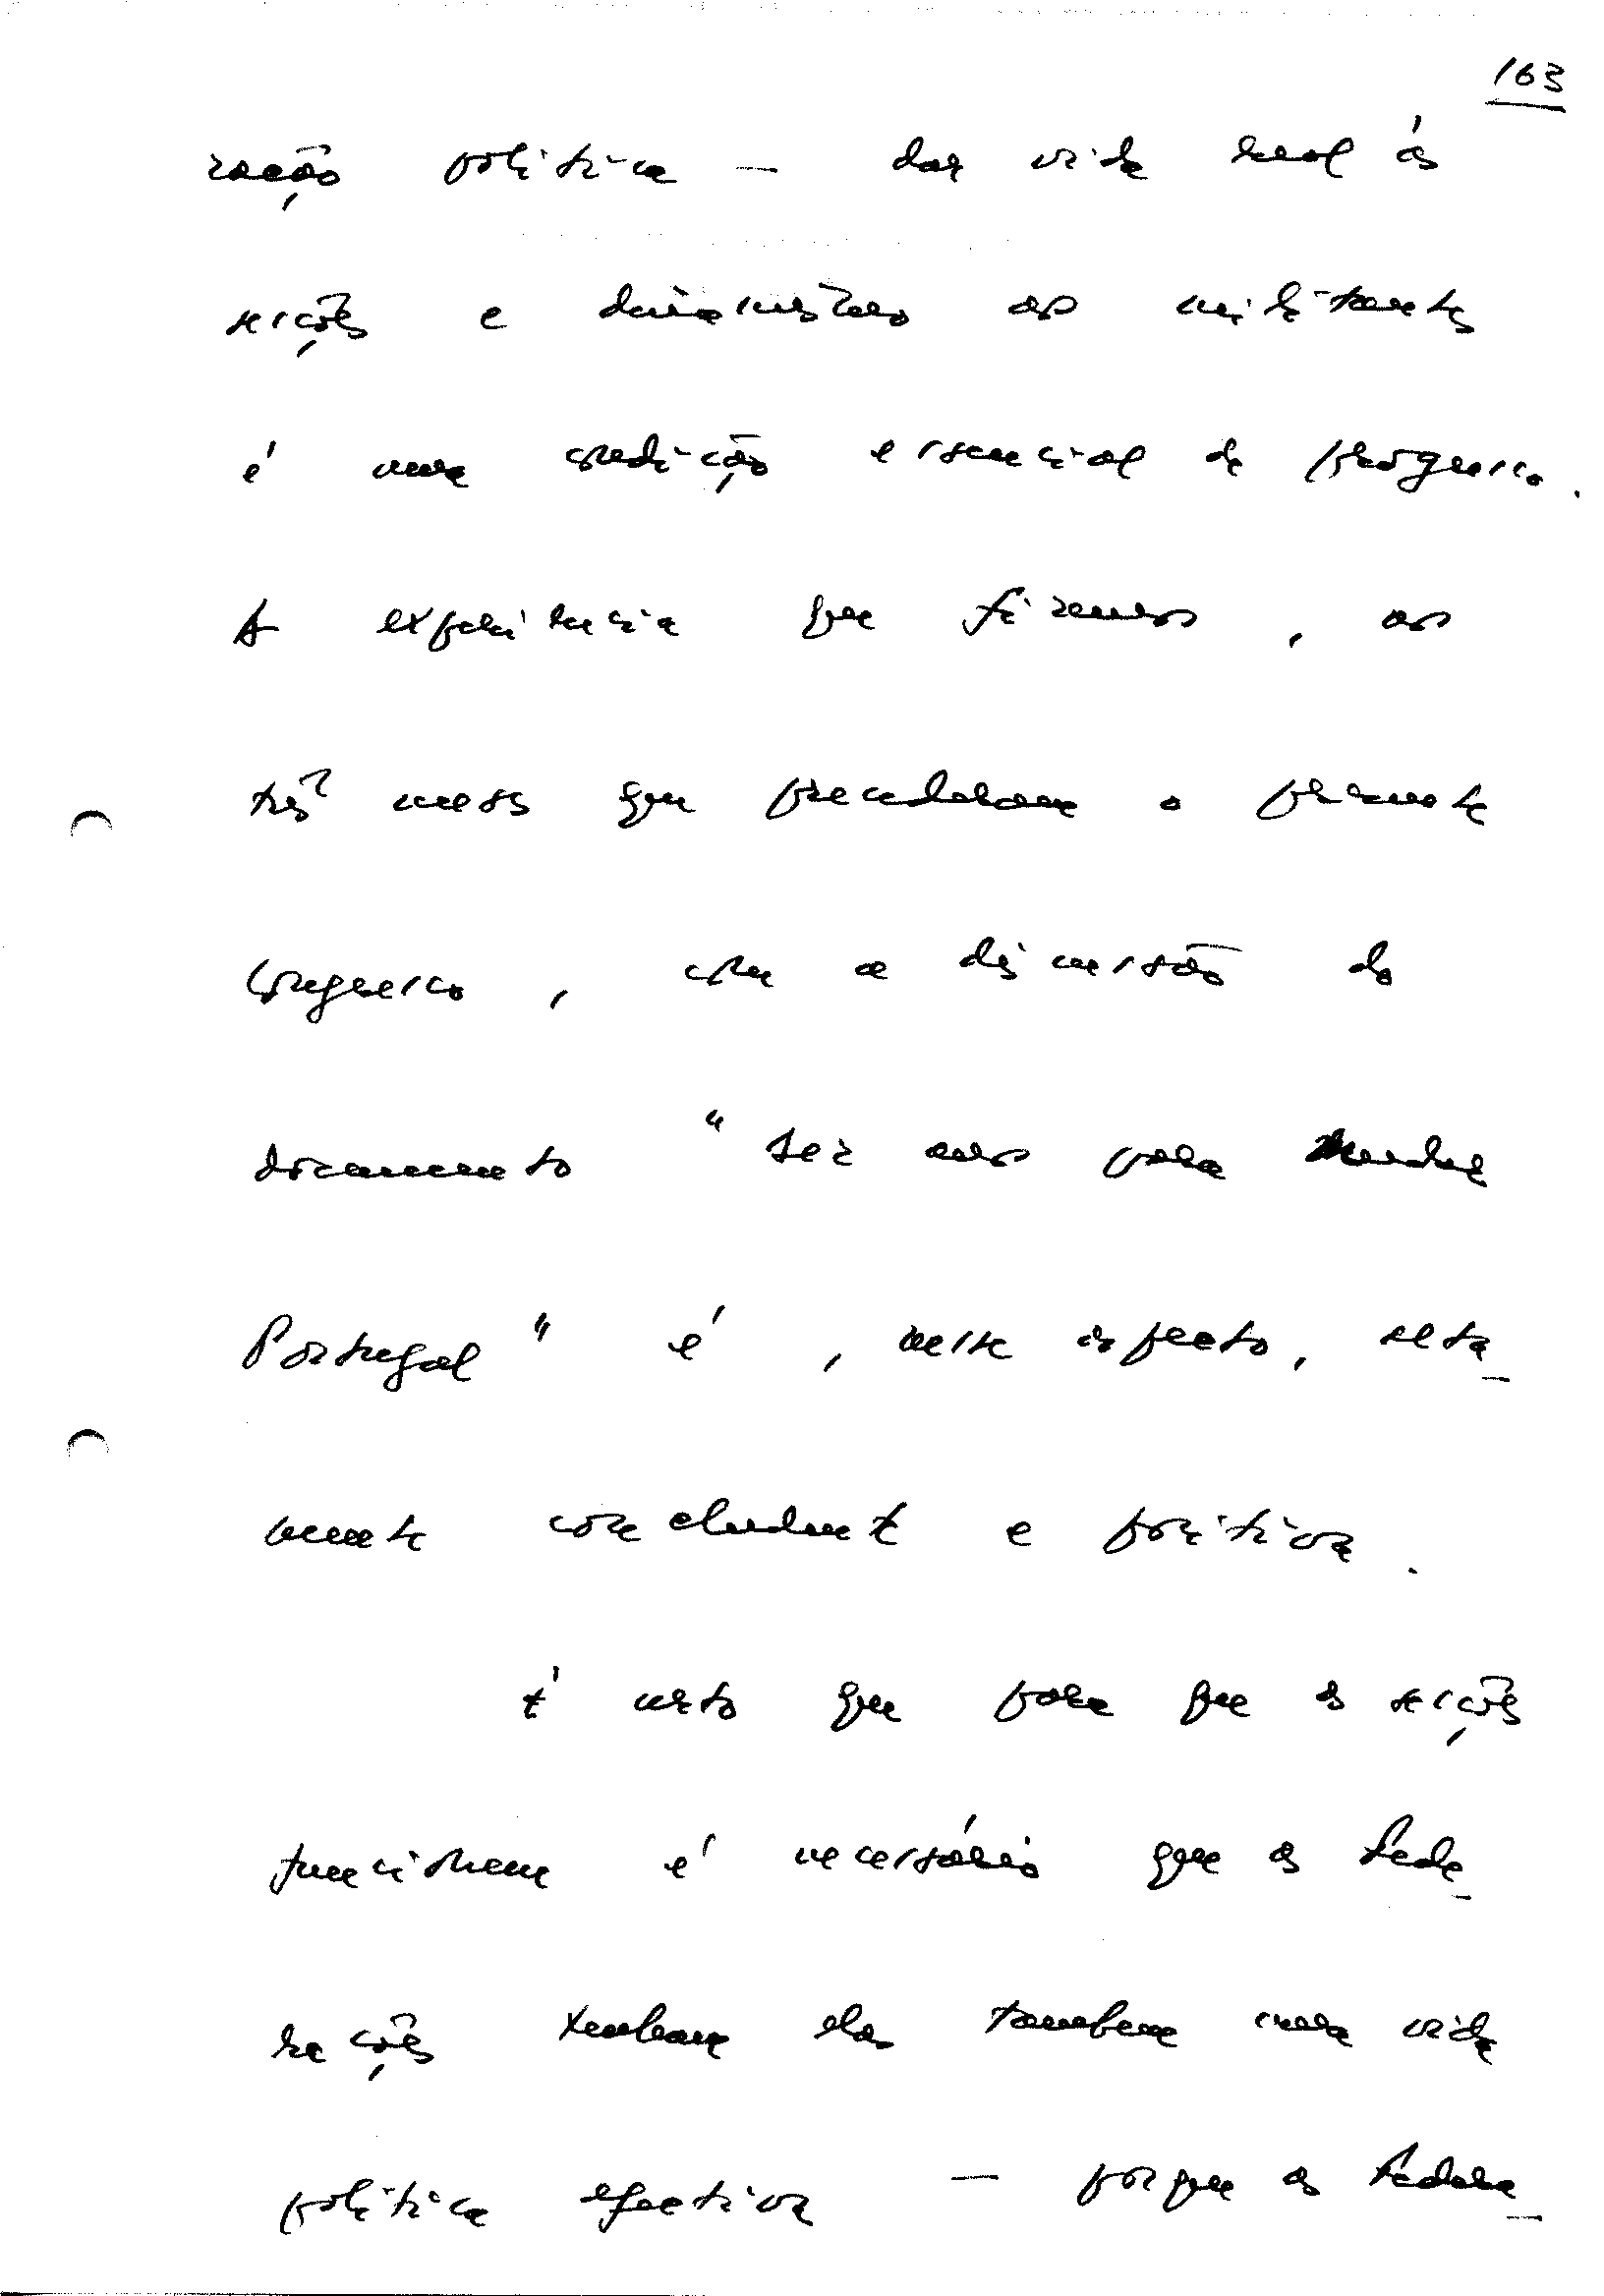 163
zação política — dar vida real às
secções e dinamismo aos militantes
é uma condição essencial de progresso.
A experiência que fizemos, nos
três meses que precederam o presente
Congresso, com a discussão do
documento "Dez anos para mudar
Portugal" é, neste aspecto, alta-
mente concludente e positiva.
É certo que para que as secções
funcionem é necessário que as Fede-
rações tenham elas também uma vida
política efectiva — porque as Federa-